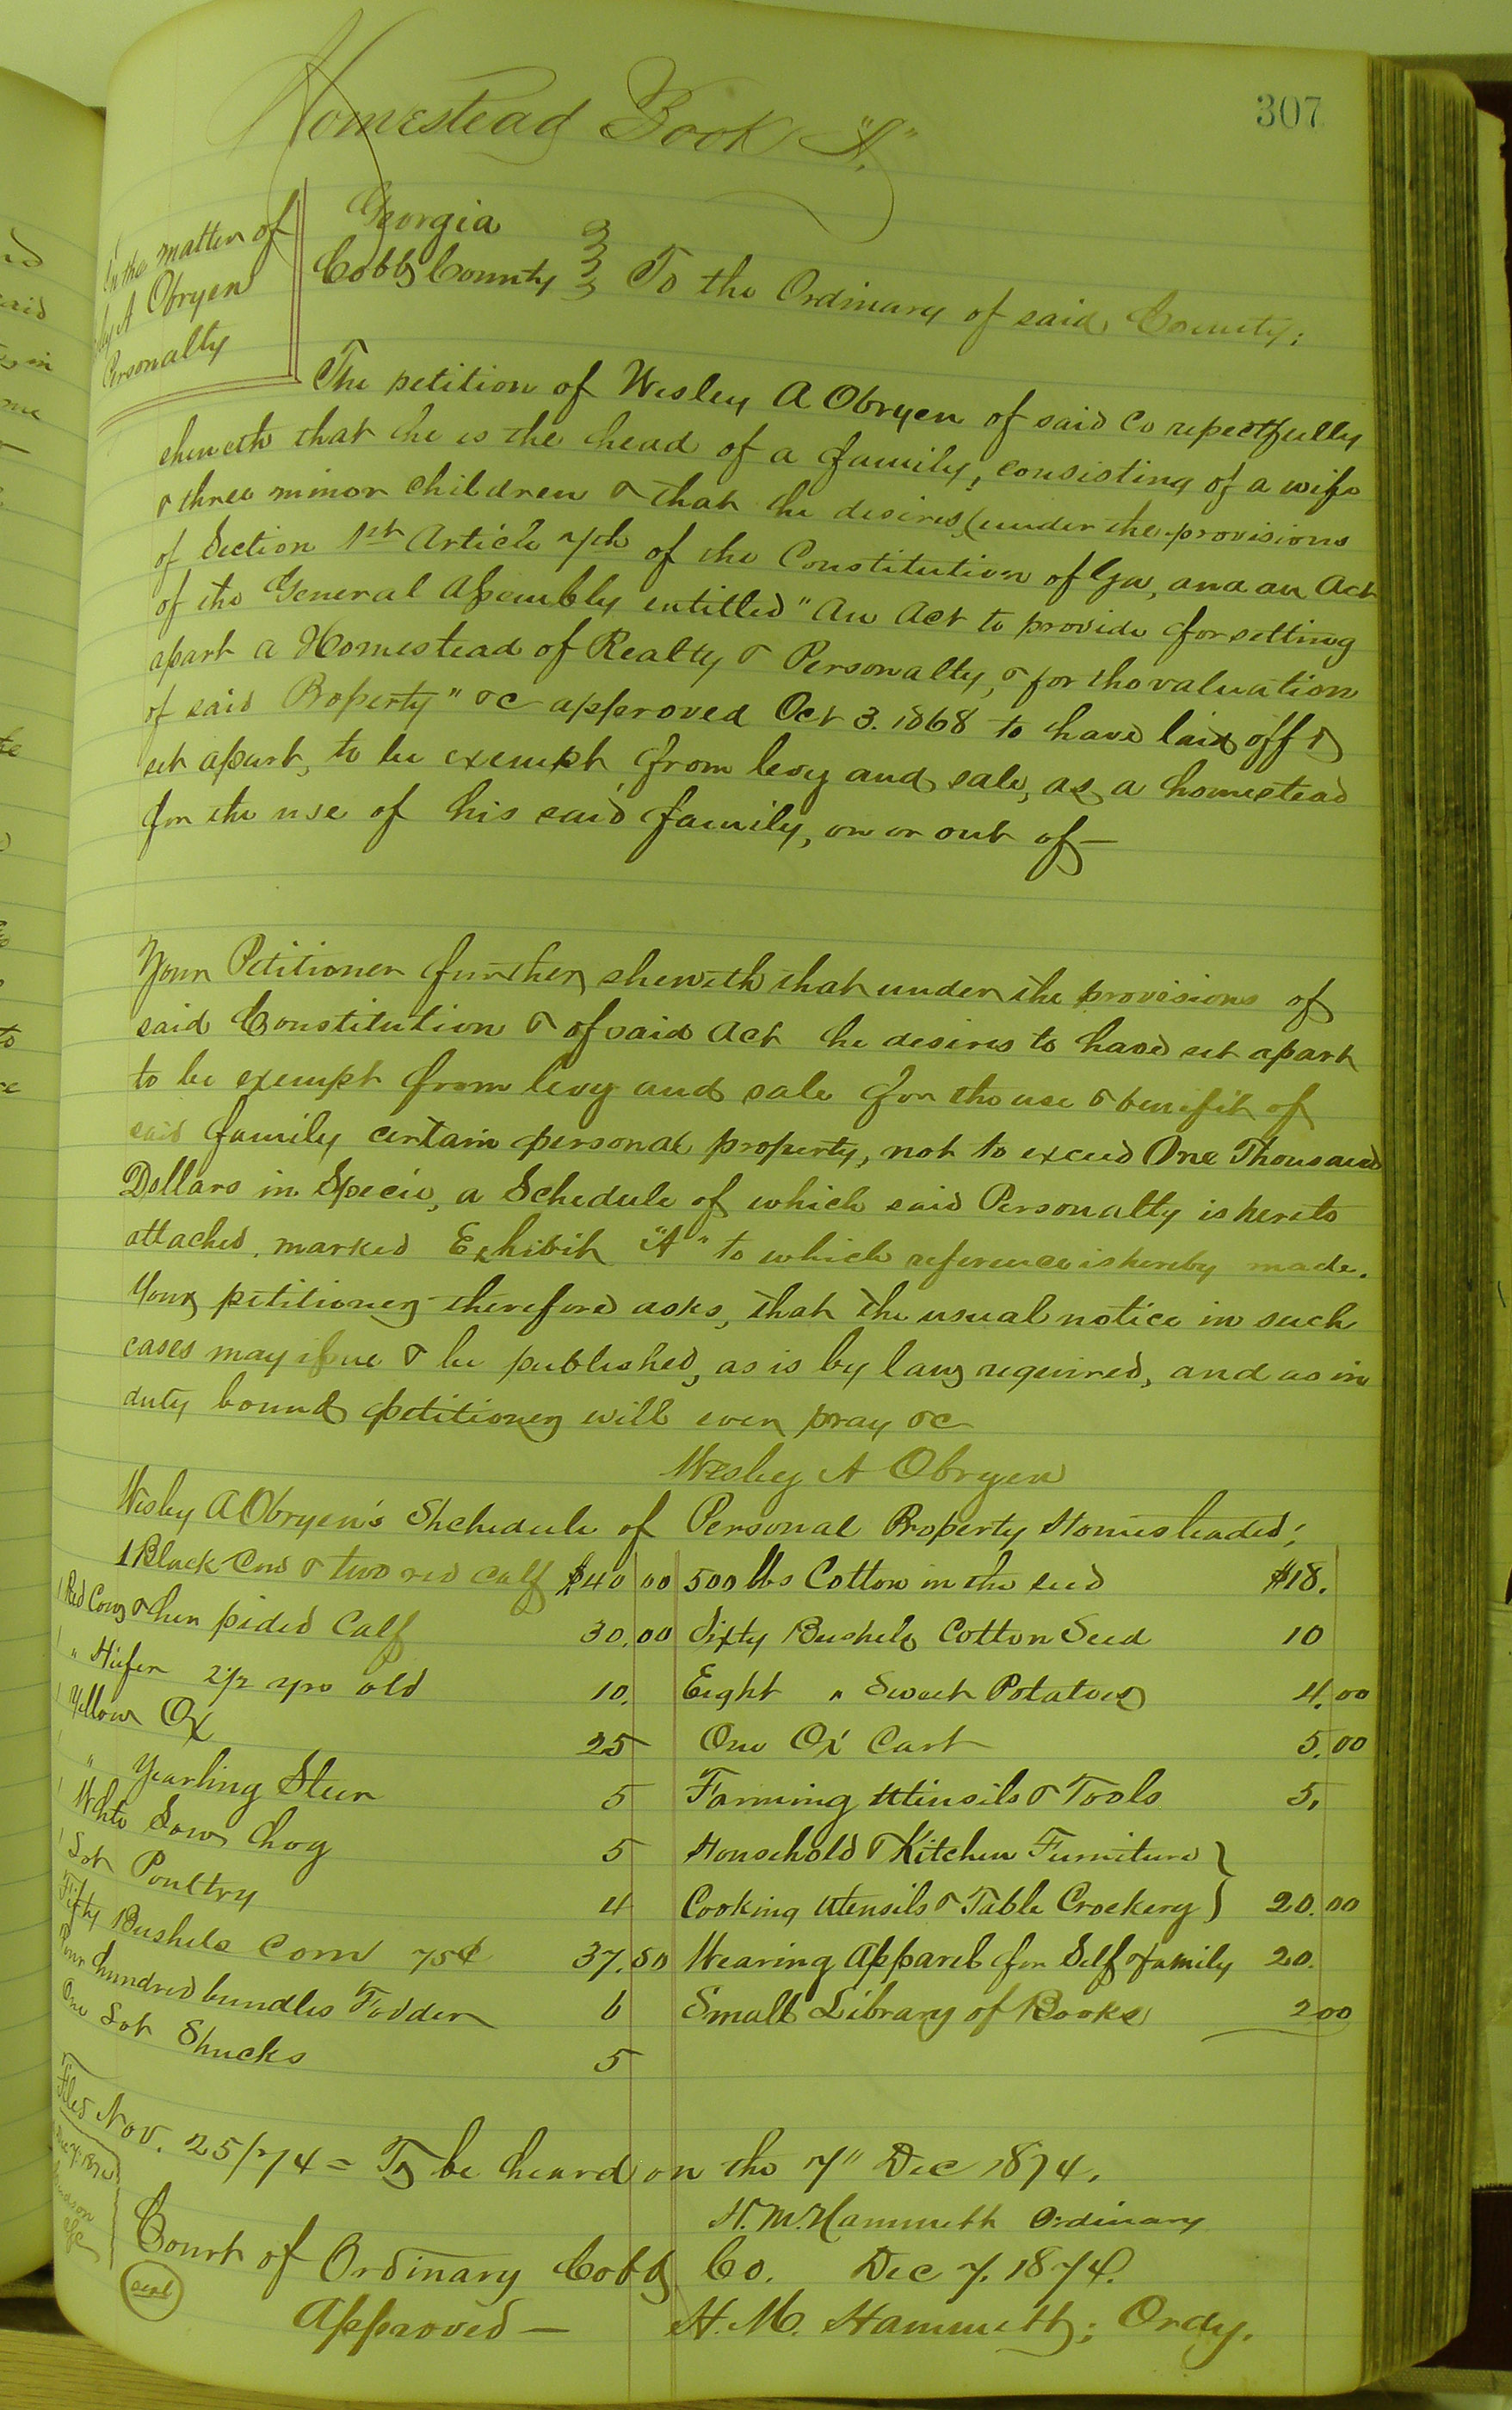 307
Homestead Book "A."
In the matter of
A Obryen
Personalty
Georgia
Cobb County } To the Ordinary of said County;
The petition of Wesley A Obryen of said Co respectfully
sheweth that he is the head of a family, consisting of a wife
& three minor children & that he desires, (under the provisions
of Section 1st Article 7th of the Constitution of Ga, and an Act
of the General Assembly entitled "An Act to provide for setting
apart a Homestead of Realty & Personalty, & for the valuation
of said Property" &c approved Oct 3. 1868 to have laid off &
set apart, to be exempt from levy and sale, as a homestead
for the use of his said family, on or out of—
Your Petitioner further sheweth that under the provisions of
said Constitution & of said Act he desires to have set apart
to be exempt from levy and sale for the use & benefit of
said family certain personal property, not to exceed One Thousand
Dollars in Specie, a Schedule of which said Personalty is hereto
attached, marked Exhibit "A" to which reference is hereby made.
Your petitioner therefore asks, that the usual notice in such
cases may issue & be published, as is by law required, and as in
duty bound petitioner will ever pray &c
Wesley A Obryen
Wesley A Obryen's Shchedule of Personal Property Homesteaded;
1 Black Cow & two red calf $40 00
1 Red Cow & her pided Calf 30.00
1 " Hiefer 2 1/2 yrs old 10.
1 Yellow Ox 25
1 " Yearling Steer 5
1 White Sow hog 5
1 Lot Poultry 4
Fifty Bushels Corn 75¢ 37.50
Four hundred bundles Fodder 6
One Lot Shucks 5
500 lbs Cotton in the seed $18.
Sixty Bushels Cotton Seed 10
Eight " Sweet Potatoes 4.00
One Ox Cart 5.00
Farming Utensils & Tools 5.
Household & Kitchen Furniture }
Cooking Utensils & Table Crockery } 20.00
Wearing Apparel for Self & family 20.
Small Library of Books 2 00
Filed Nov. 25/74 = To be heard on the 7" Dec 1874.
H. M. Hammett Ordinary
Court of Ordinary Cobb Co. Dec 7. 1874.
seal
Approved— H. M. Hammett; Ordy.